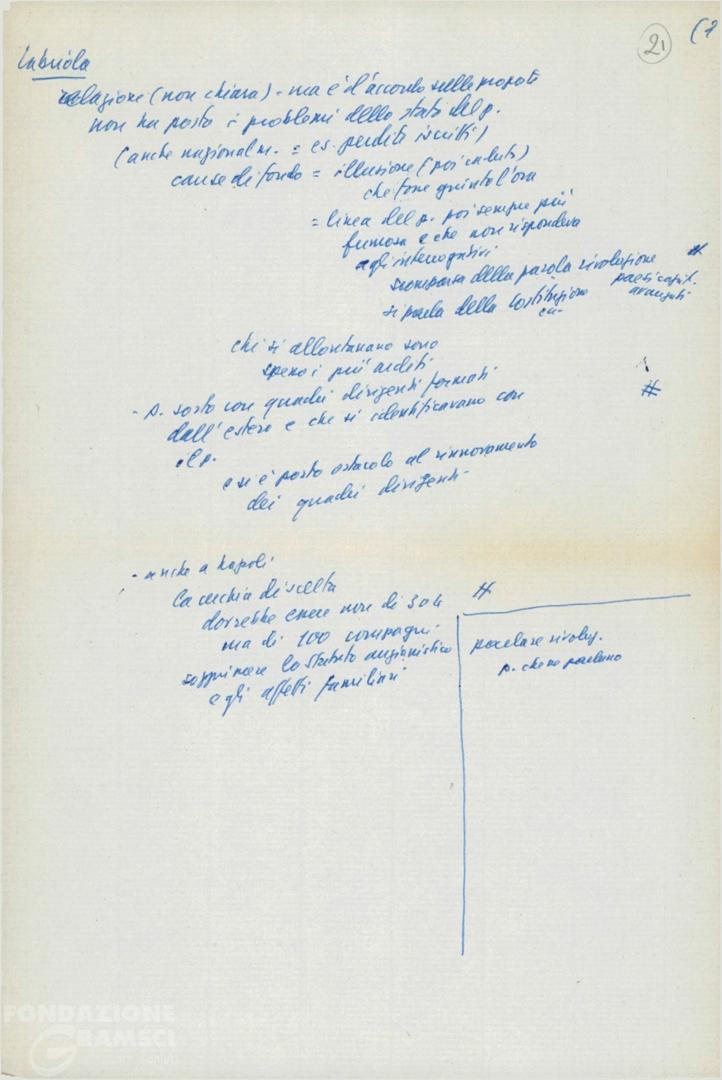 21
(2
Labriola
relazione (non chiara) - ma è d'accordo sulle proposte
non ha posto i problemi dello stato del p.
(anche nazionalm. = es. perdita iscritti)
cause di fondo = illusione (poi caduta)
che fosse giunta l'ora
= linea del p. poi sempre più
fumosa e che non rispondeva
agli interrogativi
scomparsa della parola rivoluzione #
paesi capit.
avanzati
si parla della Costituzione
chi si allontanano sono
spesso i più arditi
- p. sorto con quadri dirigenti formati
dall'estero e che si identificavano con #
il p.
e si è posto ostacolo al rinnovamento
dei quadri dirigenti
- anche a Napoli
la cerchia di scelta
dovrebbe essere non di 3 o 4
ma di 100 compagni -
sopprimere lo Statuto anzianistico
e gli affetti familiari
#
parlare rivoluz.
p. che ne parlano
FONDAZIONE
GRAMSCI